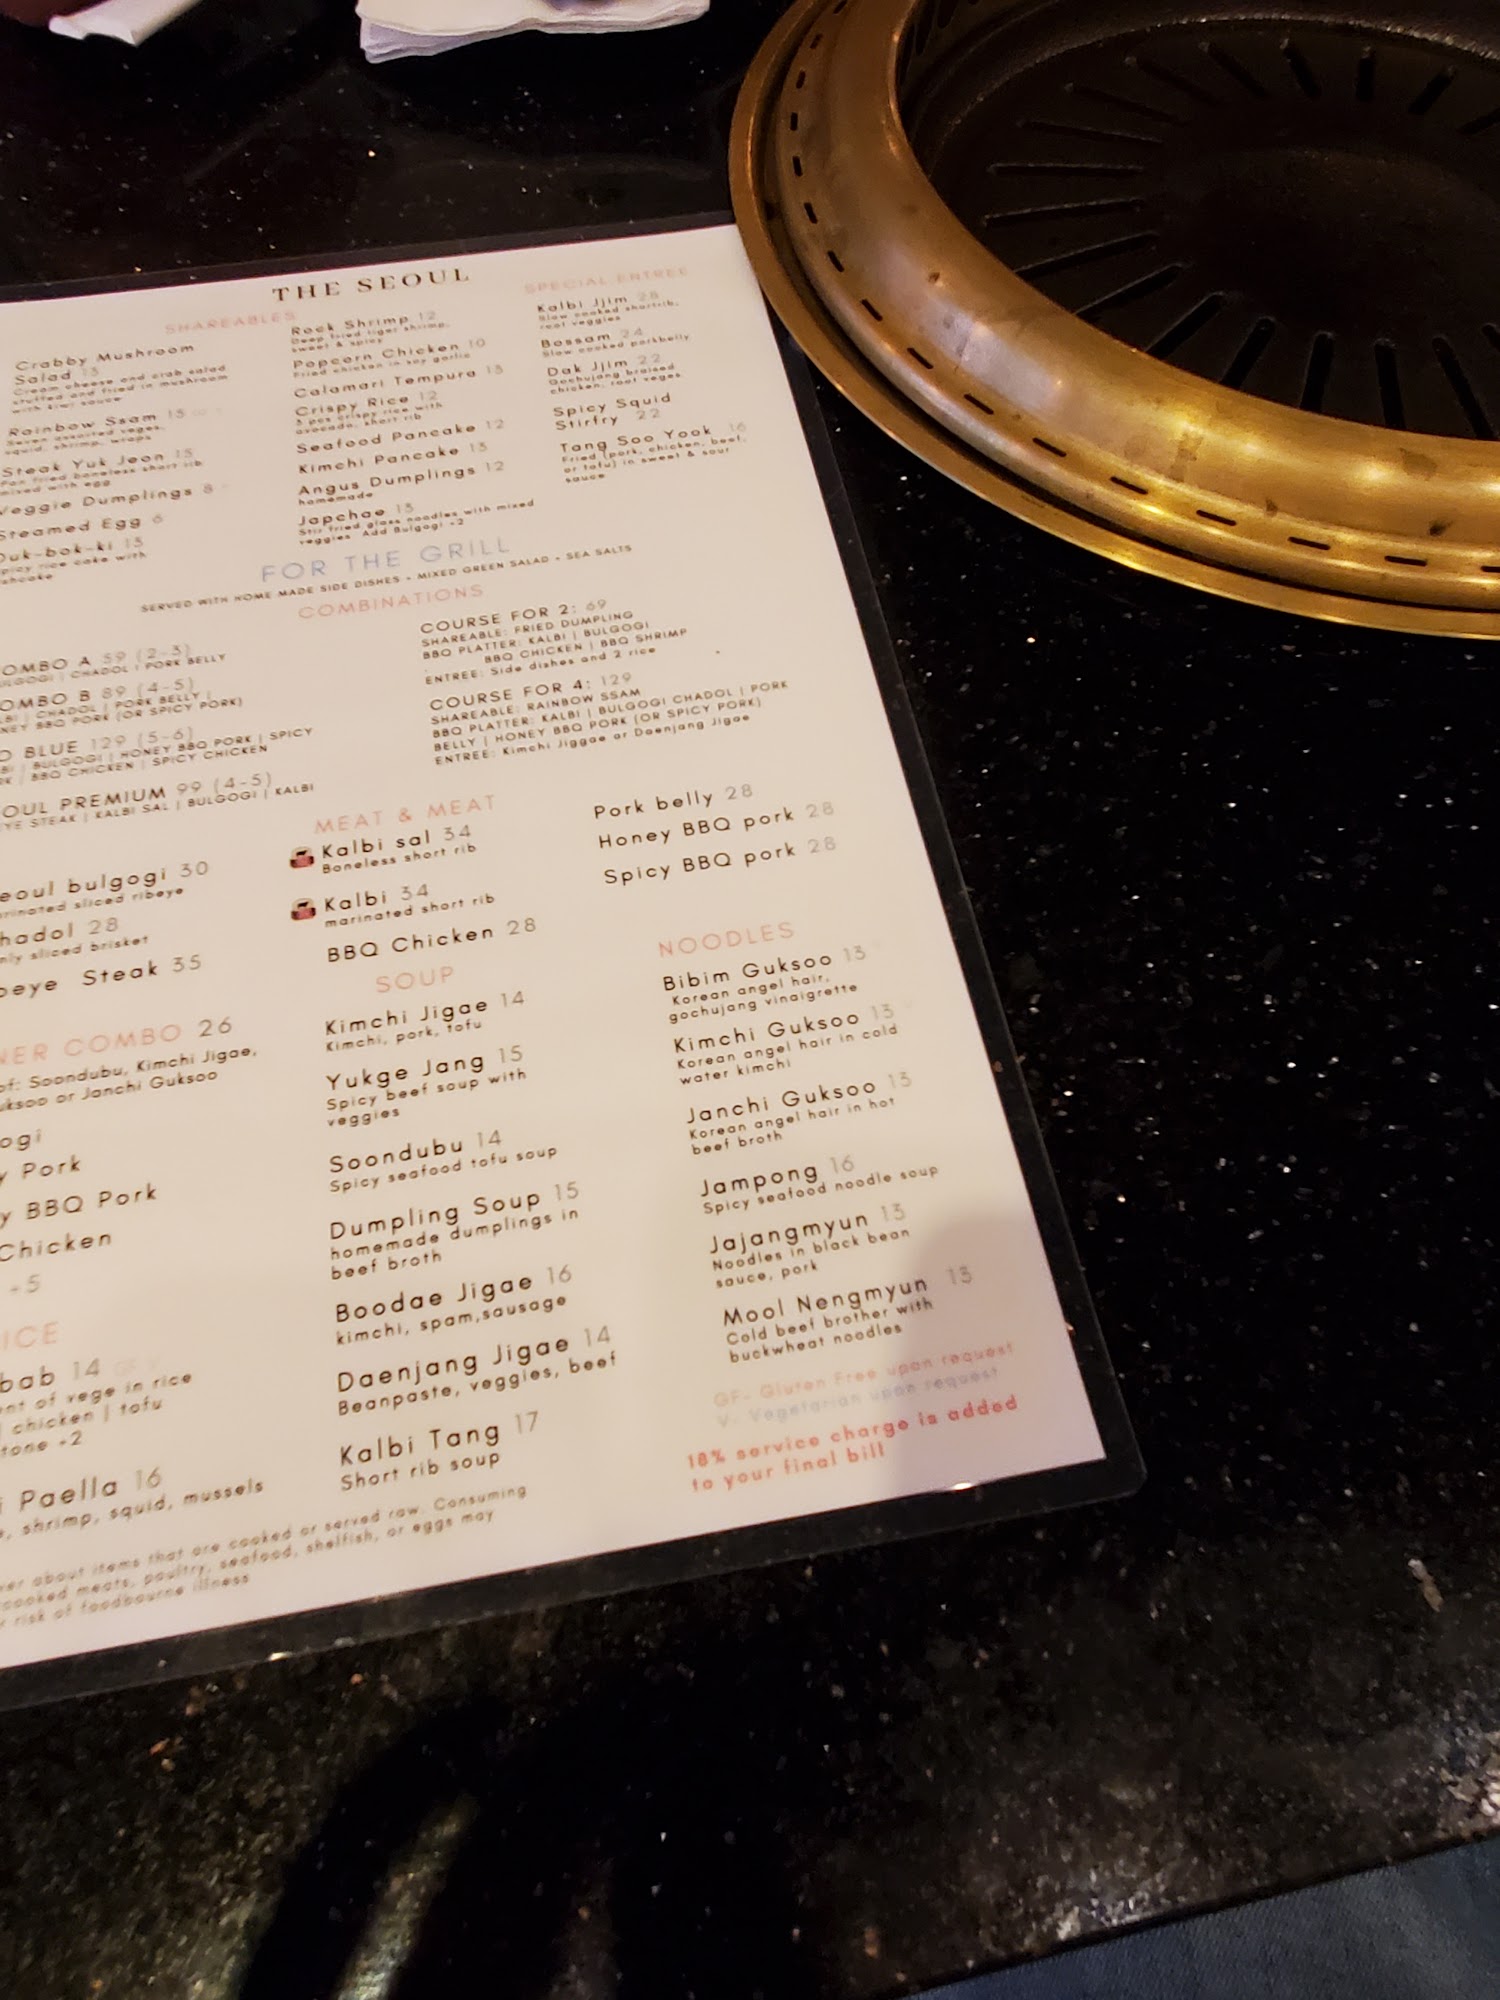 THE SEOUL
SHAREABLES
Crabby Mushroom
Salad 13
Cream cheese and crab salad
stuffed and fried in mushroom
with kiwi sauce
Rainbow Ssam 15
Seven assorted veges,
squid, shrimp, wraps
Steak Yuk Jeon 15
Pan fried boneless short rib
mixed with egg
Veggie Dumplings 8
Steamed Egg 6
Duk-bok-ki 13
spicy rice cake with
fishcake
Rock Shrimp 12
Deep fried tiger shrimp,
sweet & spicy
Popcorn Chicken 10
Fried chicken in soy garlic
Calamari Tempura 13
Crispy Rice 12
3 pcs crispy rice with
avocado, short rib
Seafood Pancake 12
Kimchi Pancake 13
Angus Dumplings 12
homemade
Japchae 13
Stir fried glass noodles with mixed
veggies Add Bulgogi +2
SPECIAL ENTREE
Kalbi Jjim 28
Slow cooked shortrib,
root veggies
Bossam 24
Slow cooked porkbelly
Dak Jjim 22
Gochujang braised
chicken, root veges
Spicy Squid
Stirfry 22
Tang Soo Yook 16
Fried (pork, chicken, beef,
or tofu) in sweet & sour
sauce
FOR THE GRILL
SERVED WITH HOME MADE SIDE DISHES + MIXED GREEN SALAD + SEA SALTS
COMBINATIONS
OMBO A 59 (2-3)
ULGOGI | CHADOL | PORK BELLY
OMBO B 89 (4-5)
LBI | CHADOL | PORK BELLY |
NEY BBQ PORK (OR SPICY PORK)
O BLUE 129 (5-6)
BI | BULGOGI | HONEY BBQ PORK | SPICY
RK | BBQ CHICKEN | SPICY CHICKEN
EOUL PREMIUM 99 (4-5)
YE STEAK | KALBI SAL | BULGOGI | KALBI
COURSE FOR 2: 69
SHAREABLE: FRIED DUMPLING
BBQ PLATTER: KALBI | BULGOGI
BBQ CHICKEN | BBQ SHRIMP
ENTREE: Side dishes and 2 rice
COURSE FOR 4: 129
SHAREABLE: RAINBOW SSAM
BBQ PLATTER: KALBI | BULGOGI CHADOL | PORK
BELLY | HONEY BBQ PORK (OR SPICY PORK)
ENTREE: Kimchi Jiggae or Daenjang Jigae
MEAT & MEAT
eoul bulgogi 30
arinated sliced ribeye
hadol 28
nly sliced brisket
beye Steak 35
Kalbi sal 34
Boneless short rib
Kalbi 34
marinated short rib
BBQ Chicken 28
Pork belly 28
Honey BBQ pork 28
Spicy BBQ pork 28
NER COMBO 26
of: Soondubu, Kimchi Jigae,
uksoo or Janchi Guksoo
ogi
y Pork
y BBQ Pork
Chicken
+5
ICE
bab 14 GF V
nt of vege in rice
| chicken | tofu
tone +2
i Paella 16
s, shrimp, squid, mussels
SOUP
Kimchi Jigae 14
Kimchi, pork, tofu
Yukge Jang 15
Spicy beef soup with
veggies
Soondubu 14
Spicy seafood tofu soup
Dumpling Soup 15
homemade dumplings in
beef broth
Boodae Jigae 16
kimchi, spam,sausage
Daenjang Jigae 14
Beanpaste, veggies, beef
Kalbi Tang 17
Short rib soup
NOODLES
Bibim Guksoo 13
Korean angel hair,
gochujang vinaigrette
Kimchi Guksoo 13
Korean angel hair in cold
water kimchi
Janchi Guksoo 13
Korean angel hair in hot
beef broth
Jampong 16
Spicy seafood noodle soup
Jajangmyun 13
Noodles in black bean
sauce, pork
Mool Nengmyun 13
Cold beef brother with
buckwheat noodles
GF- Gluten Free upon request
V- Vegetarian upon request
18% service charge is added
to your final bill
ver about items that are cooked or served raw. Consuming
cooked meats, poultry, seafood, shelfish, or eggs may
r risk of foodbourne illness